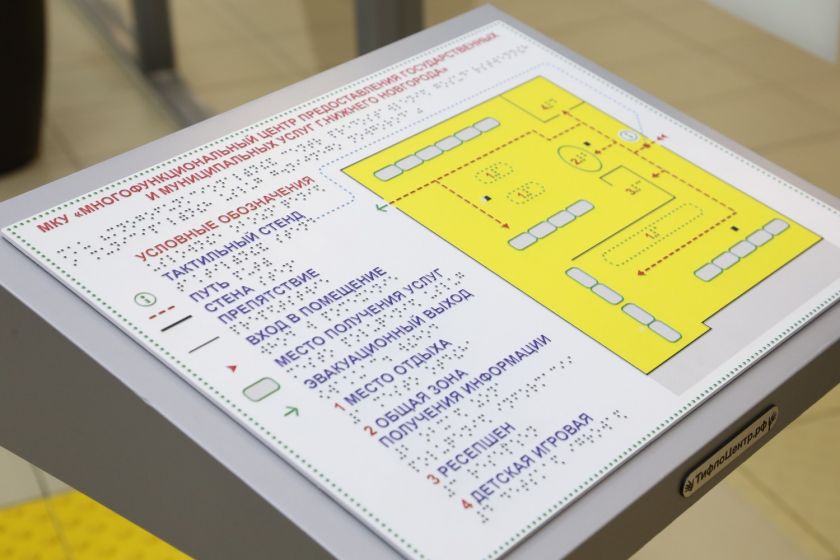 МКУ «МНОГОФУНКЦИОНАЛЬНЫЙ ЦЕНТР ПРЕДОСТАВЛЕНИЯ ГОСУДАРСТВЕННЫХ
И МУНИЦИПАЛЬНЫХ УСЛУГ Г.НИЖНЕГО НОВГОРОДА»
УСЛОВНЫЕ ОБОЗНАЧЕНИЯ
ТАКТИЛЬНЫЙ СТЕНД
ПУТЬ
СТЕНА
ПРЕПЯТСТВИЕ
ВХОД В ПОМЕЩЕНИЕ
МЕСТО ПОЛУЧЕНИЯ УСЛУГ
ЭВАКУАЦИОННЫЙ ВЫХОД
1 МЕСТО ОТДЫХА
2 ОБЩАЯ ЗОНА
ПОЛУЧЕНИЯ ИНФОРМАЦИИ
3 РЕСЕПШЕН
4 ДЕТСКАЯ ИГРОВАЯ
4
2
3
1
1
1
ТифлоЦентр.рф